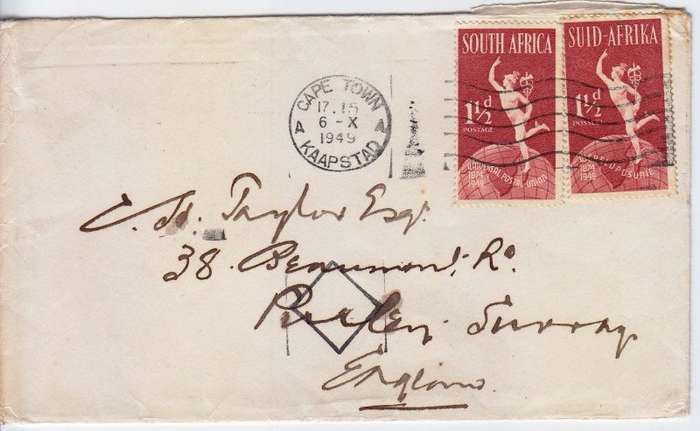 CAPE TOWN
17. 15
6 - X
1949
A A
KAAPSTAD
SOUTH AFRICA
1½d
POSTAGE
UNIVERSAL POSTAL UNION
1874
1949
SUID-AFRIKA
1½d
POSSEEL
WERELDPOSUNIE
1874
1949
Taylor Esqr.
38. Beaumont, Rd.
Purley, Surrey
England